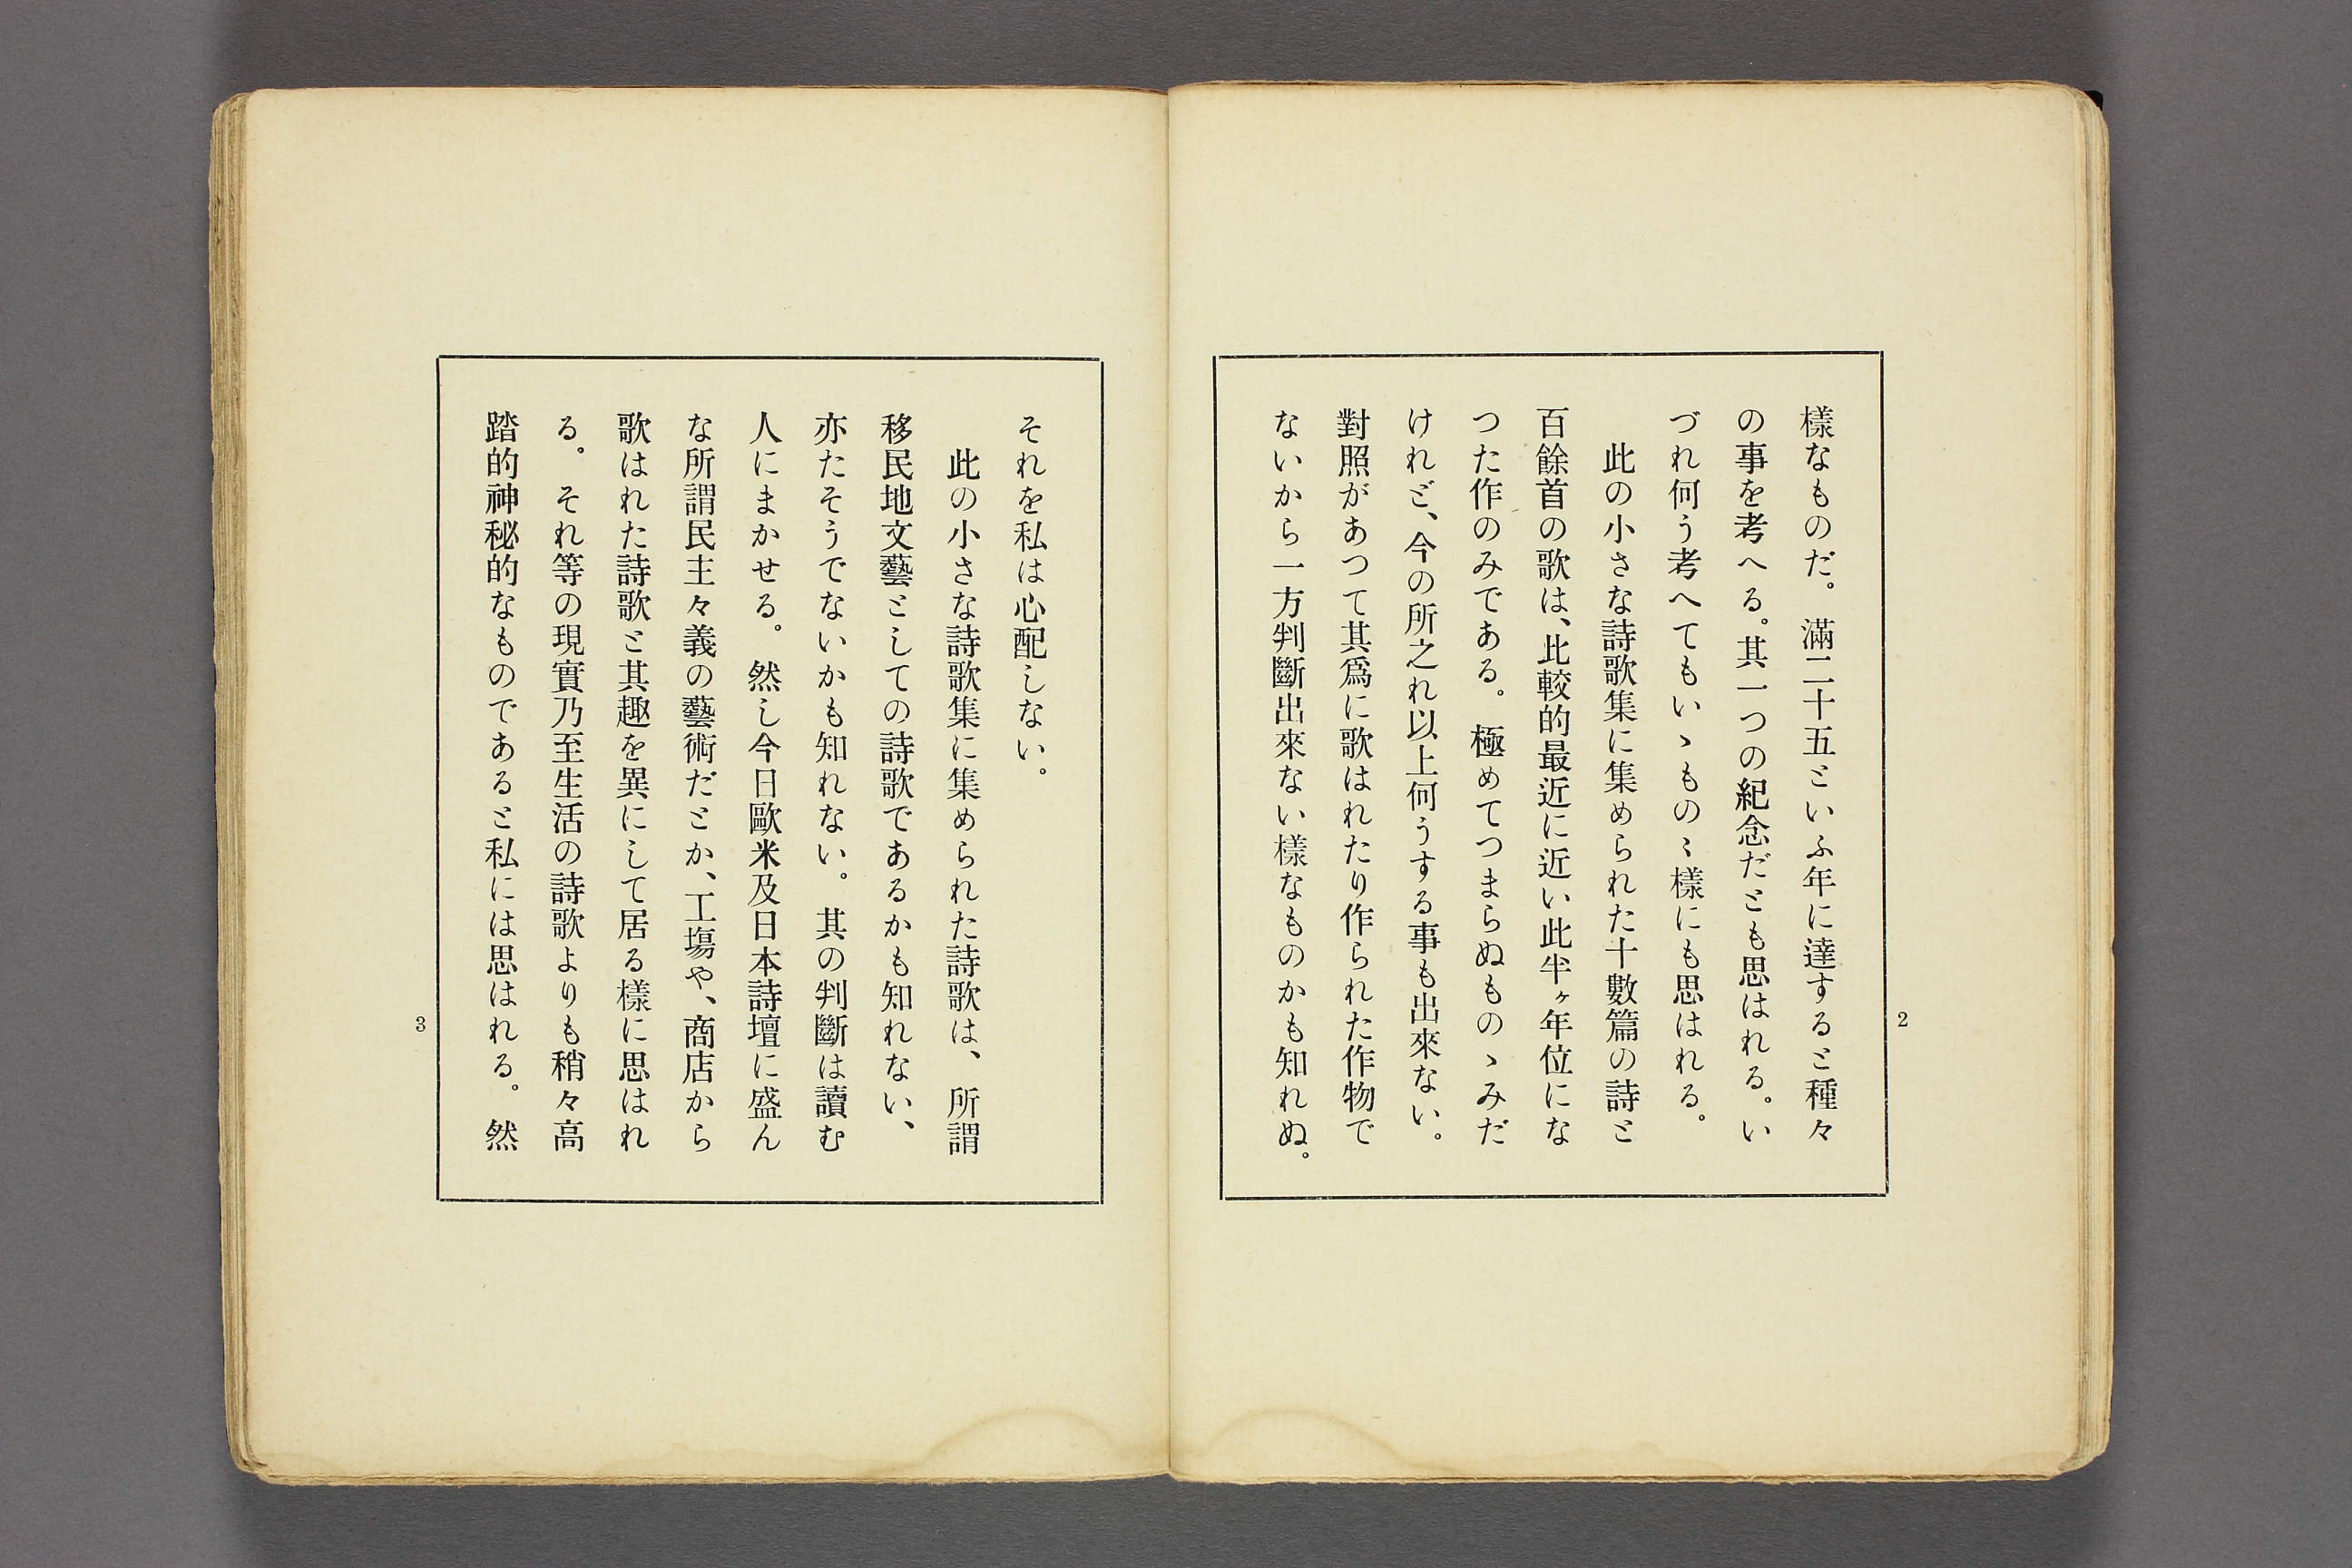 樣なものだ。滿二十五といふ年に達すると種々
の事を考へる。其一つの紀念だとも思はれる。い
づれ何う考へてもいゝものゝ樣にも思はれる。
此の小さな詩歌集に集められた十數篇の詩と
百餘首の歌は、此較的最近に近い此半ヶ年位にな
つた作のみである。極めてつまらぬものゝみだ
けれど、今の所之れ以上何うする事も出來ない。
對照があつて其爲に歌はれたり作られた作物で
ないから一方判斷出來ない樣なものかも知れぬ。
2
それを私は心配しない。
此の小さな詩歌集に集められた詩歌は、所謂
移民地文藝としての詩歌であるかも知れない、
亦たそうでないかも知れない。其の判斷は讀む
人にまかせる。然し今日歐米及日本詩壇に盛ん
な所謂民主々義の藝術だとか、工塲や、商店から
歌はれた詩歌と其趣を異にして居る樣に思はれ
る。それ等の現實乃至生活の詩歌よりも稍々高
踏的神秘的なものであると私には思はれる。然
3